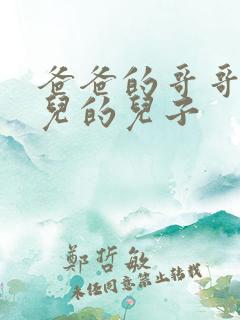 爸爸的哥哥
兒的兒子
鄭哲敏
未经同意禁止转载